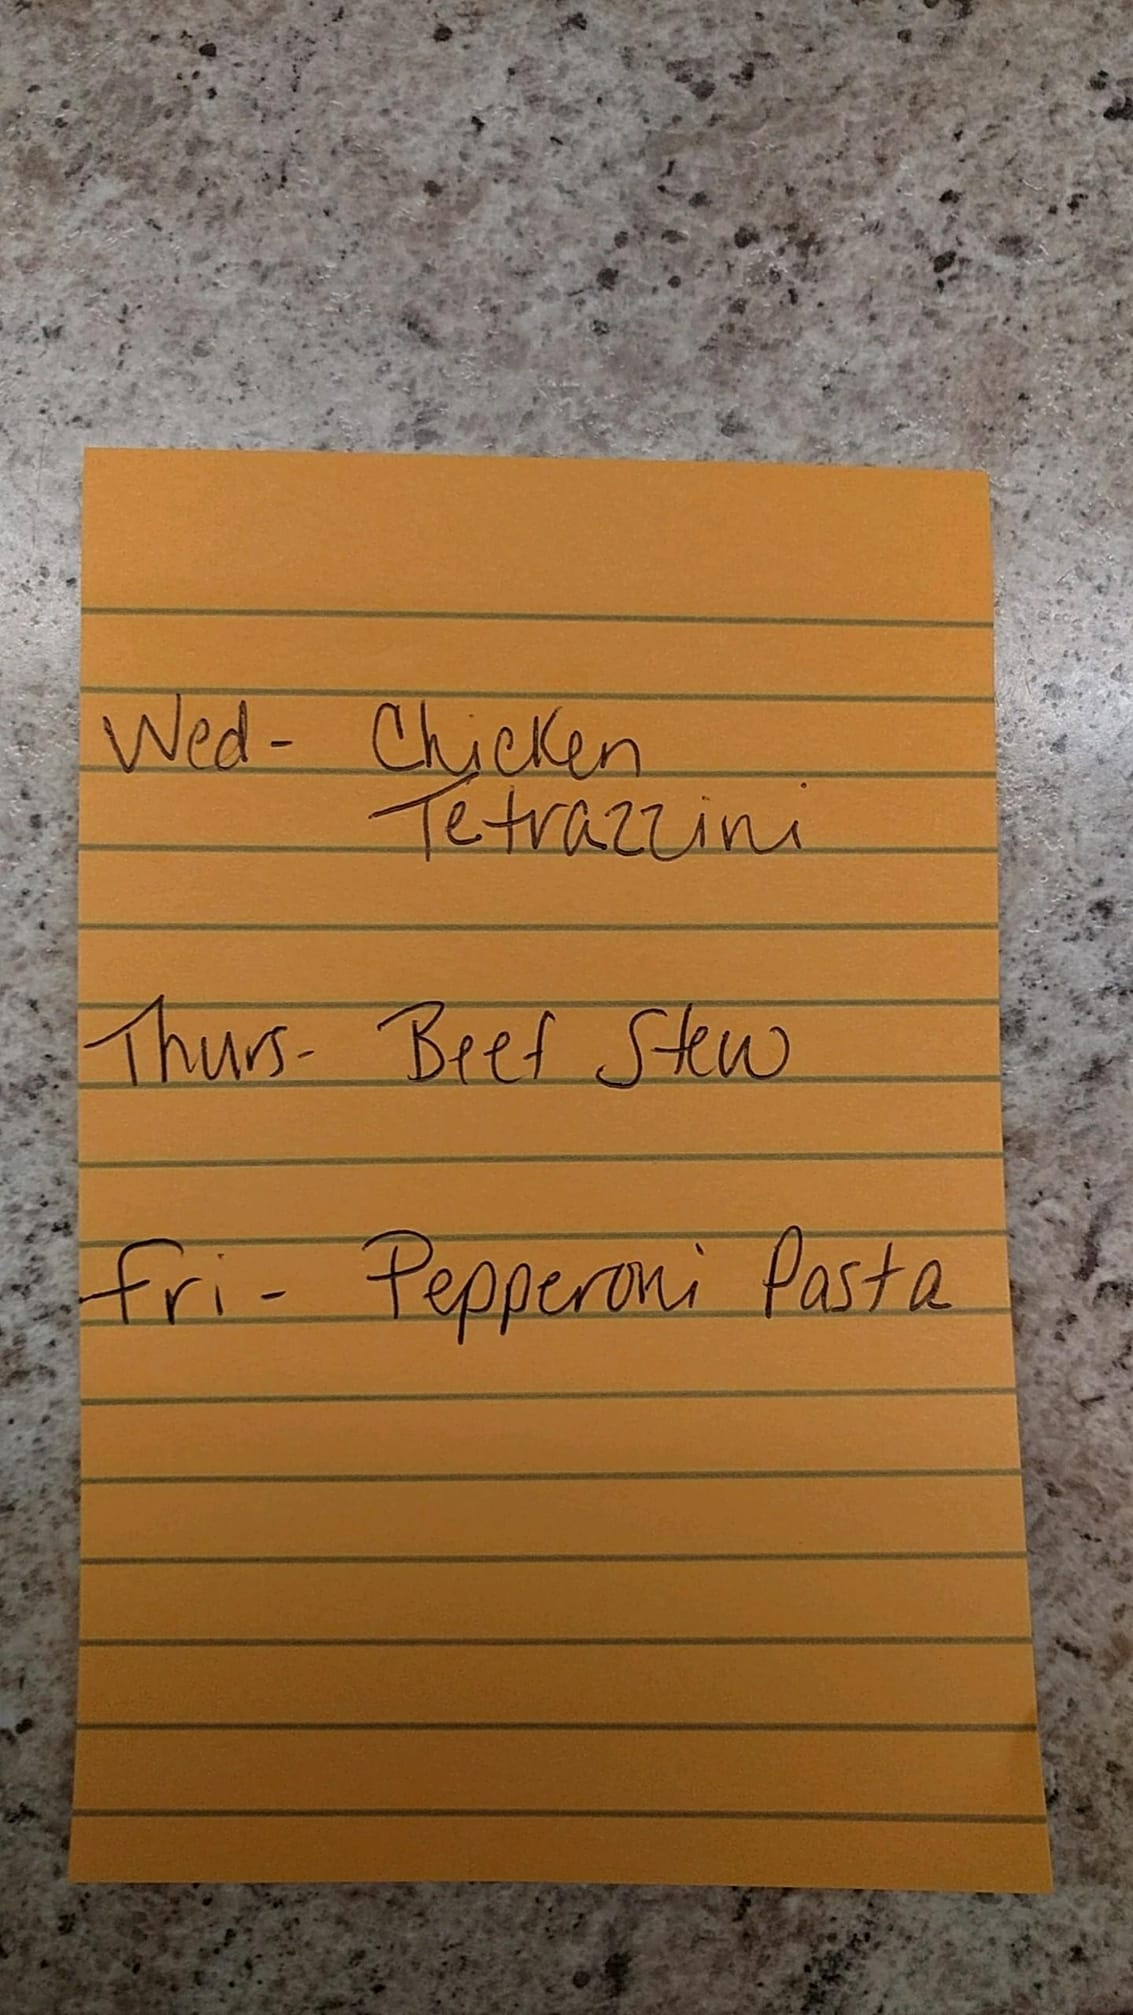 Wed- Chicken
Tetrazzini
Thurs- Beef Stew
Fri- Pepperoni Pasta